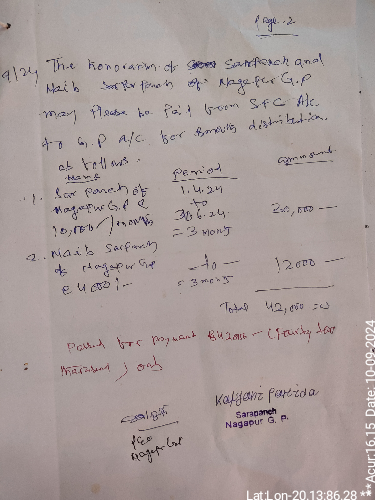 Page. 2
9/24 The honorarium of Sarpanch and
Naib Sarpanch of Nagapur G.P
may Please be Paid from SFC A/c.
to G.P A/C. for 3 month distribution.
as follows.
Name Period ammount
1. Sarpanch of 1.4.24
Nagapur G.P @ to
10,000/month 30.6.24. 30,000 —
= 3 month
2. Naib Sarpanch
of Nagapur GP — to — 12000 —
@ 4000/- = 3 month
Total 42,000 =00
Passed for payment Rs 42000 — (Fourty two
thousand) only
PEO
Nagapur GP
Kalyani Parida
Sarapanch
Nagapur G. P.
Lat:Lon-20.13:86.28 **Acur:16.15 Date: 10-09-2024